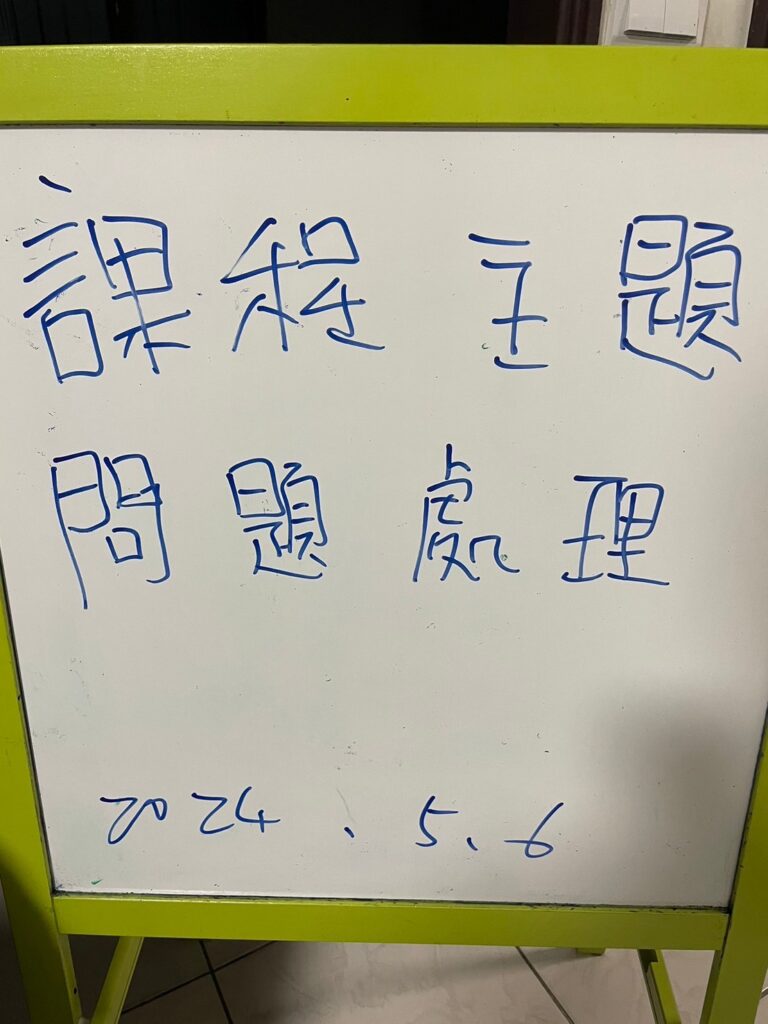 課程主題
問題處理
2024、5、6